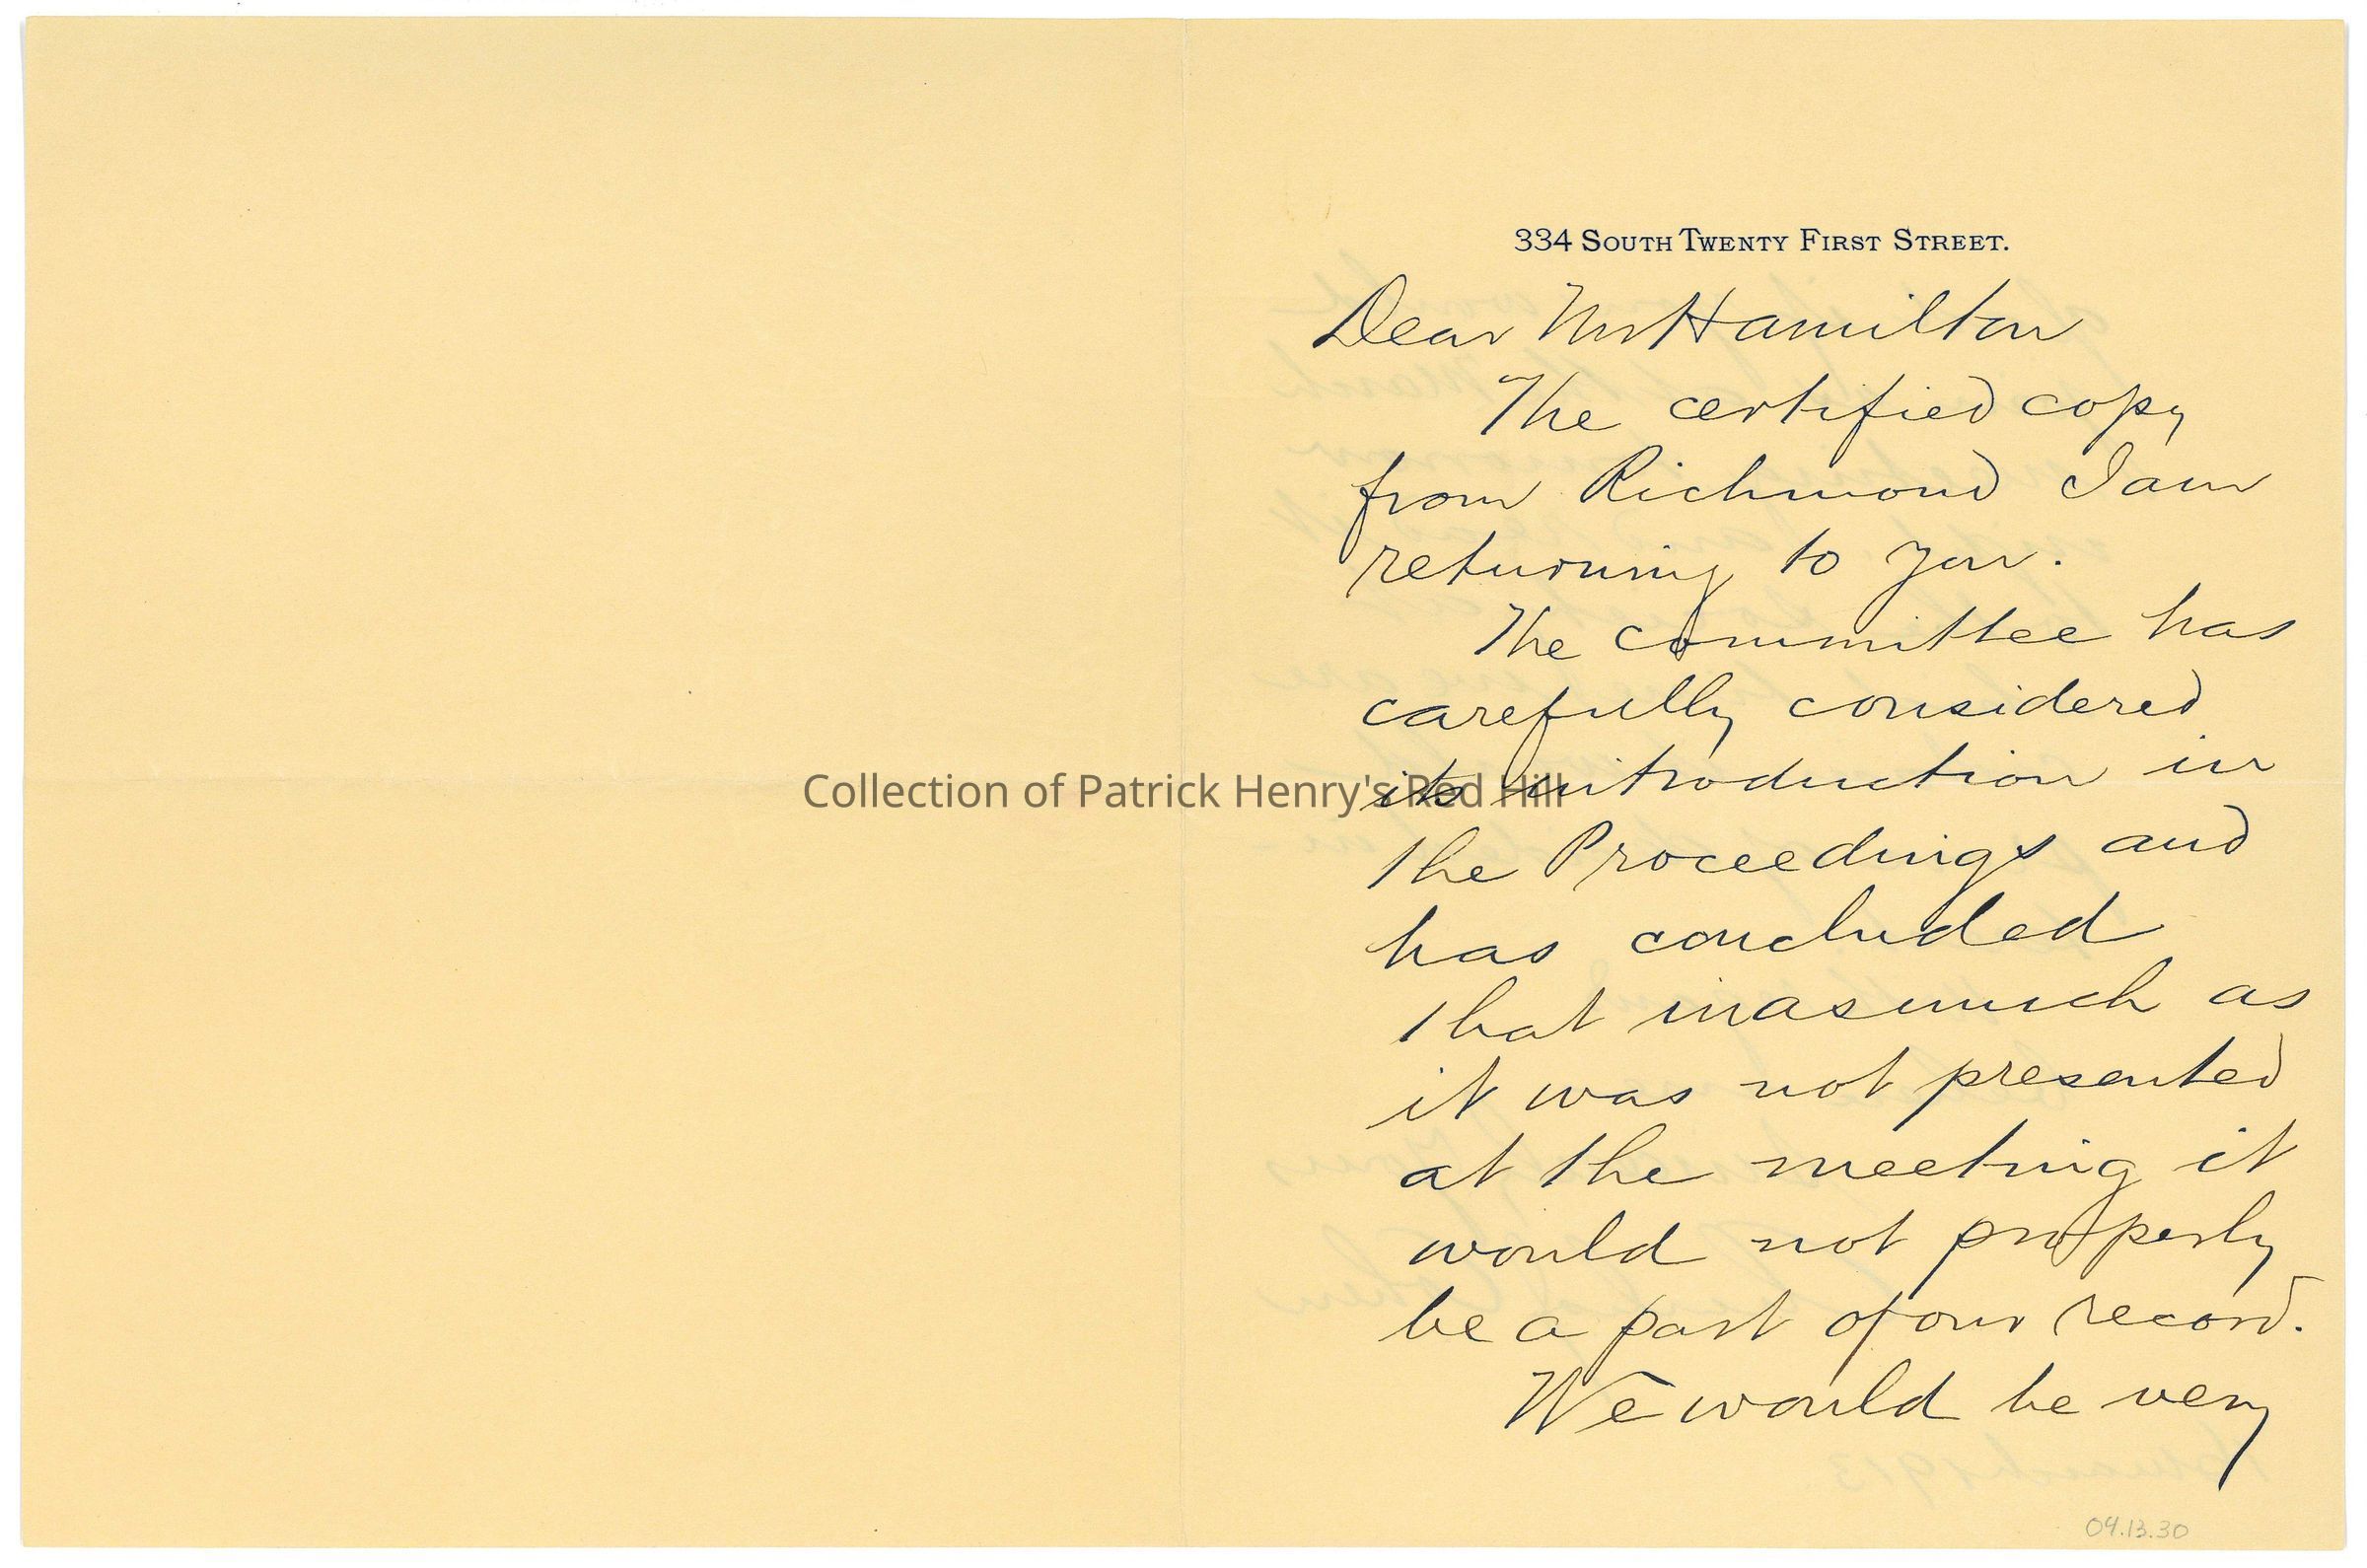 334 South Twenty First Street.
Dear Mr Hamilton
The certified copy
from Richmond I am
returning to you.
The committee has
carefully considered
its introduction in
the Proceedings and
has concluded
that inasmuch as
it was not presented
at the meeting it
would not properly
be a part of our record.
We would be very
04.13.30
Collection of Patrick Henry's Red Hill